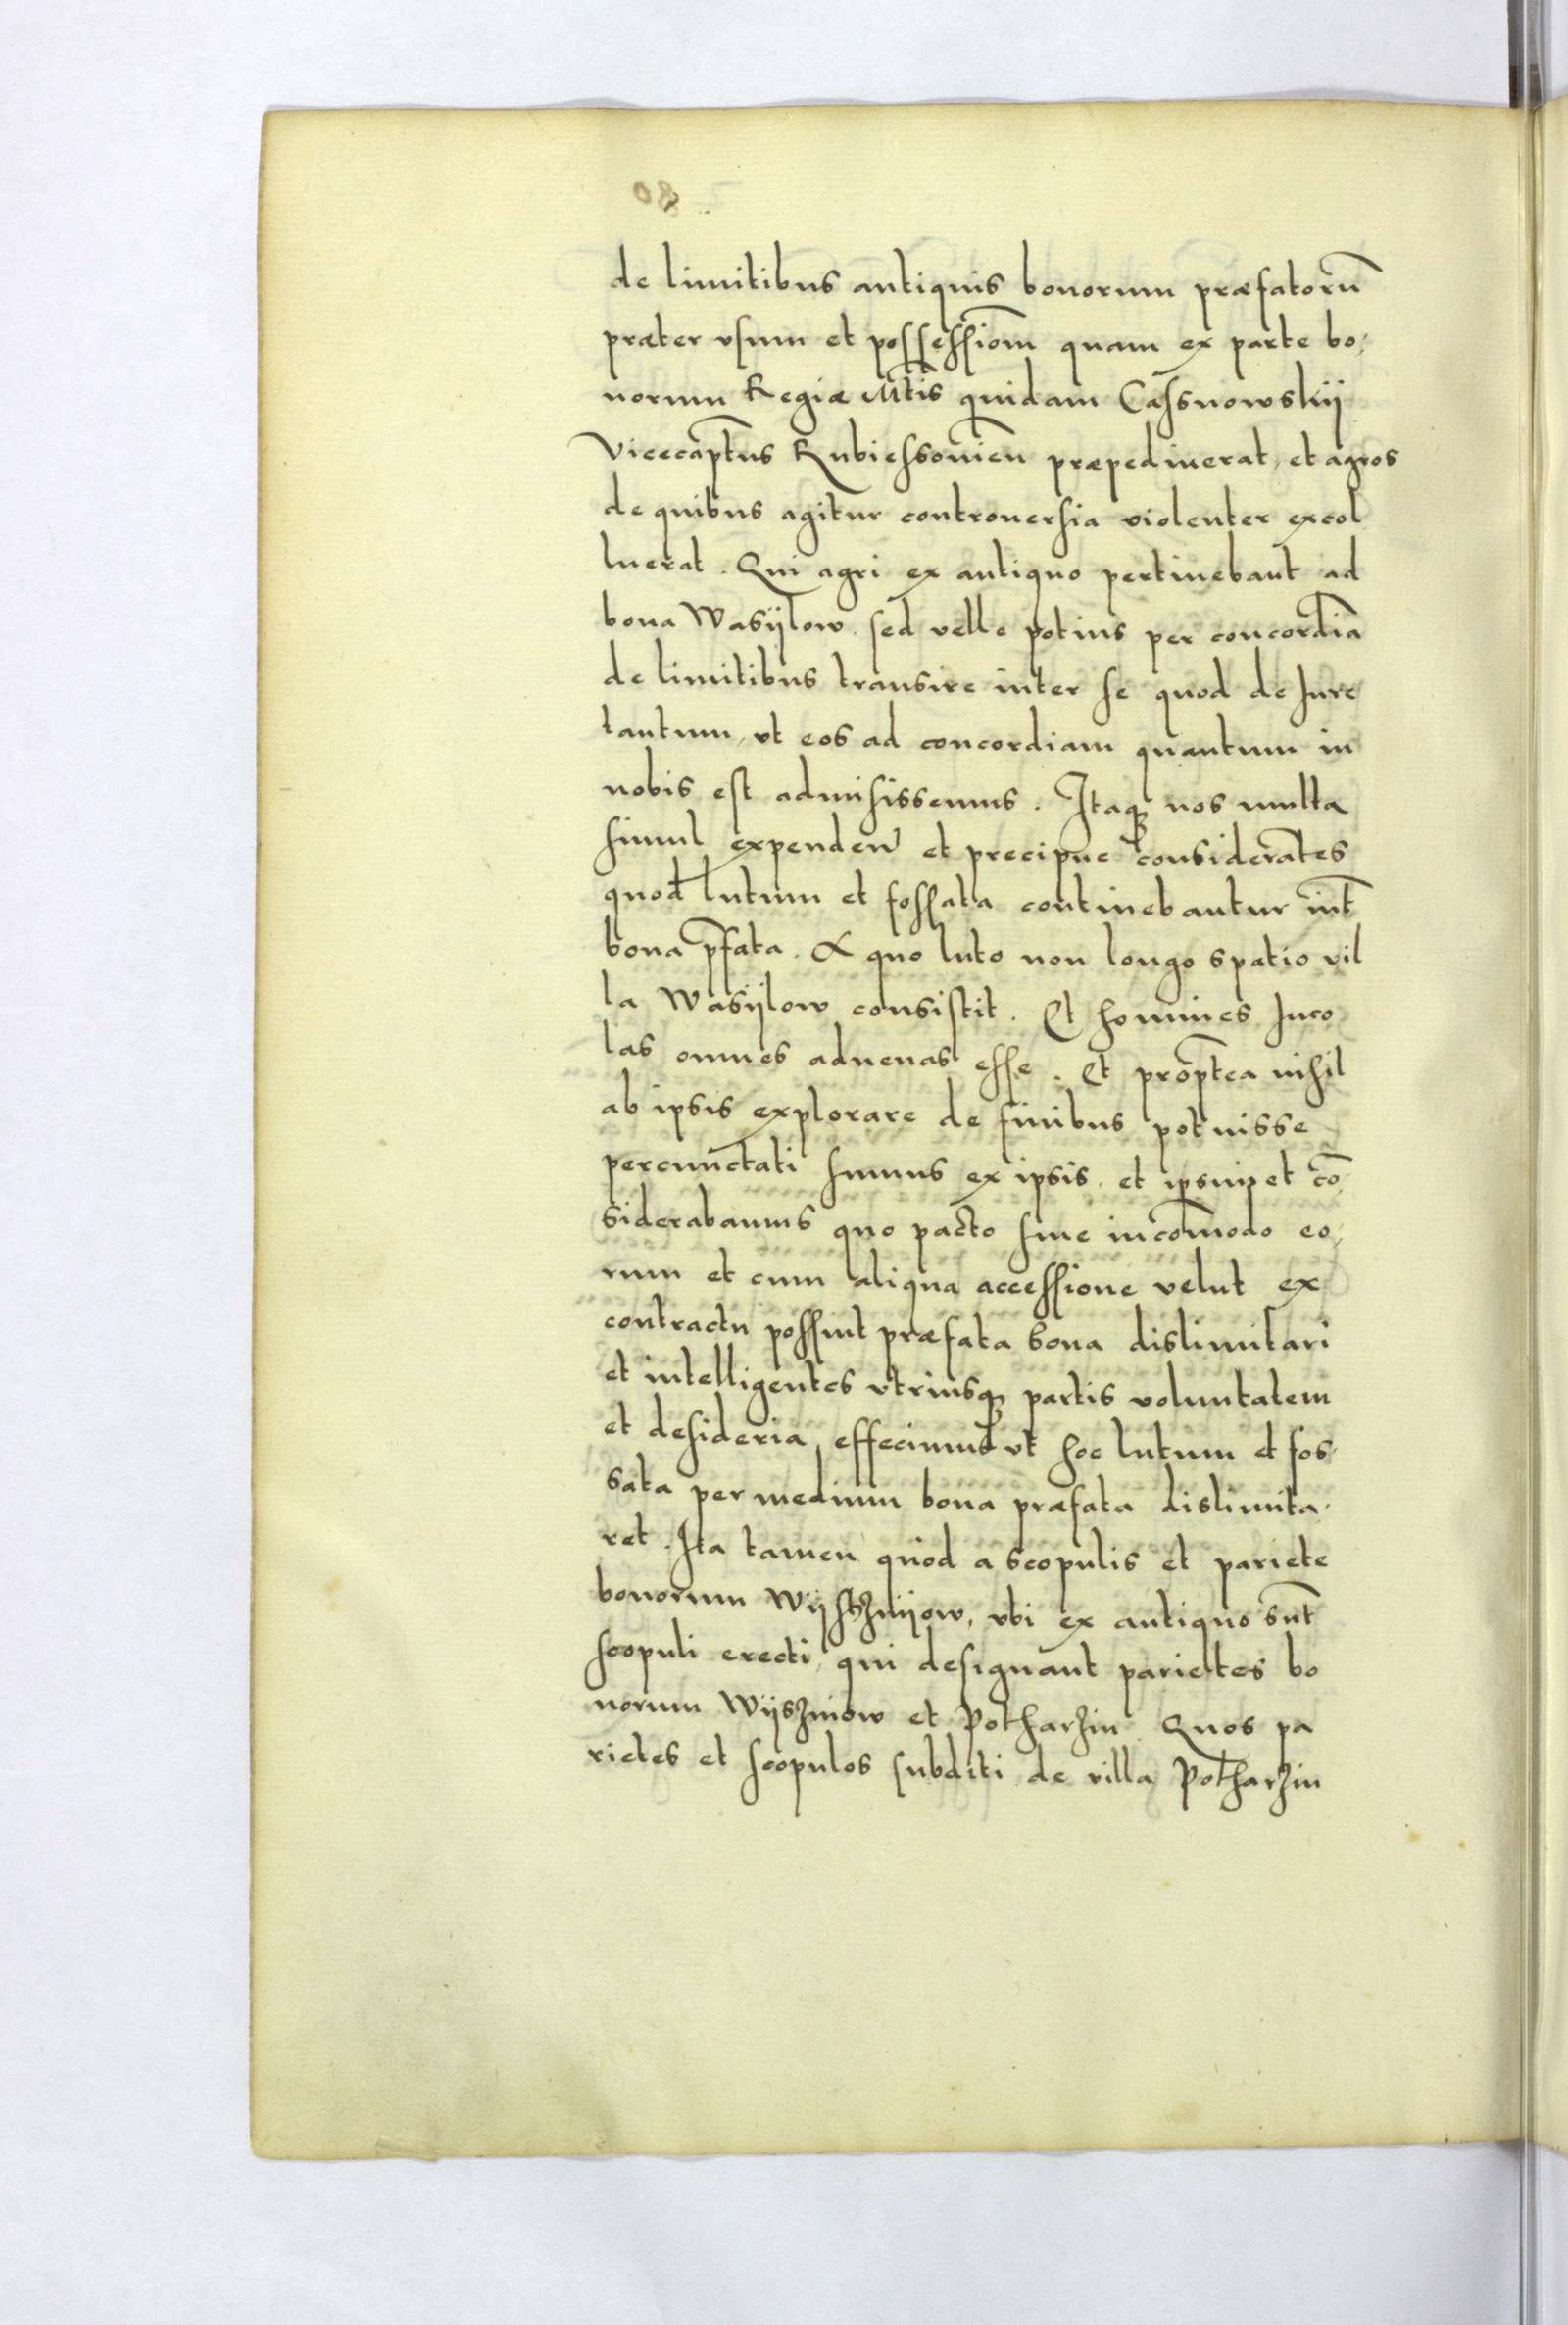 de limitibus antiquis bonorum præfatorū
præter vsum et possessiōm quam ex parte bo,
norum Regiæ Mt̄is quidam Cassnowskij
Vicecap̄tus Rubiessowien̄ præpediuerat, et agros
de quibus agitur controuersia violenter excol
luerat. Qui agri ex antiquo pertinebant ad
bona Wasijlow. sed velle potius per concordiā
de limitibus transire inter se quod de Jure
tantum, vt eos ad concordiam quantum in
nobis est admisissemus. Itaq̨ nos multa
simul expenden̄ et precipue considerātes
quod lutum et fossata continebantur int̄
bona p̄fata. A quo luto non longo spatio vil
la Wasijlow consistit. Et homines Inco
las omnes aduenas esse. Et prop̄tea nihil
ab ipsis explorare de finibus potuisse
percunctati sumus ex ipsis. et ipsimet cō,
siderabamus quo pacto sine incōmodo eo,
rum et cum aliqua accessione velut ex
contractu possint præfata bona dislimitari
et intelligentes vtriusq̨ partis voluntatem
et desideria, effecimus vt hoc lutum et fos,
sata per medium bona præfata dislimita,
ret. Ita tamen quod a scopulis et pariete
bonorum Wijschznijow, vbi ex antiquo sūt
scopuli erecti, qui designant parietes bo
norum Wijszniow et Potharzin. Quos pa
rietes et scopulos subditi de villa Potharzin